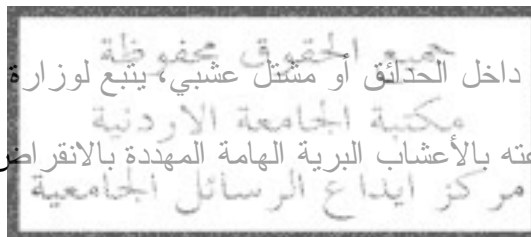 جميع الحقوق محفوظة
داخل الحدائق أو مشتل عشبي، يتبع لوزارة
مكتبة الجامعة الاردنية
عته بالأعشاب البرية الهامة المهددة بالانقراض
مركز ايداع الرسائل الجامعية